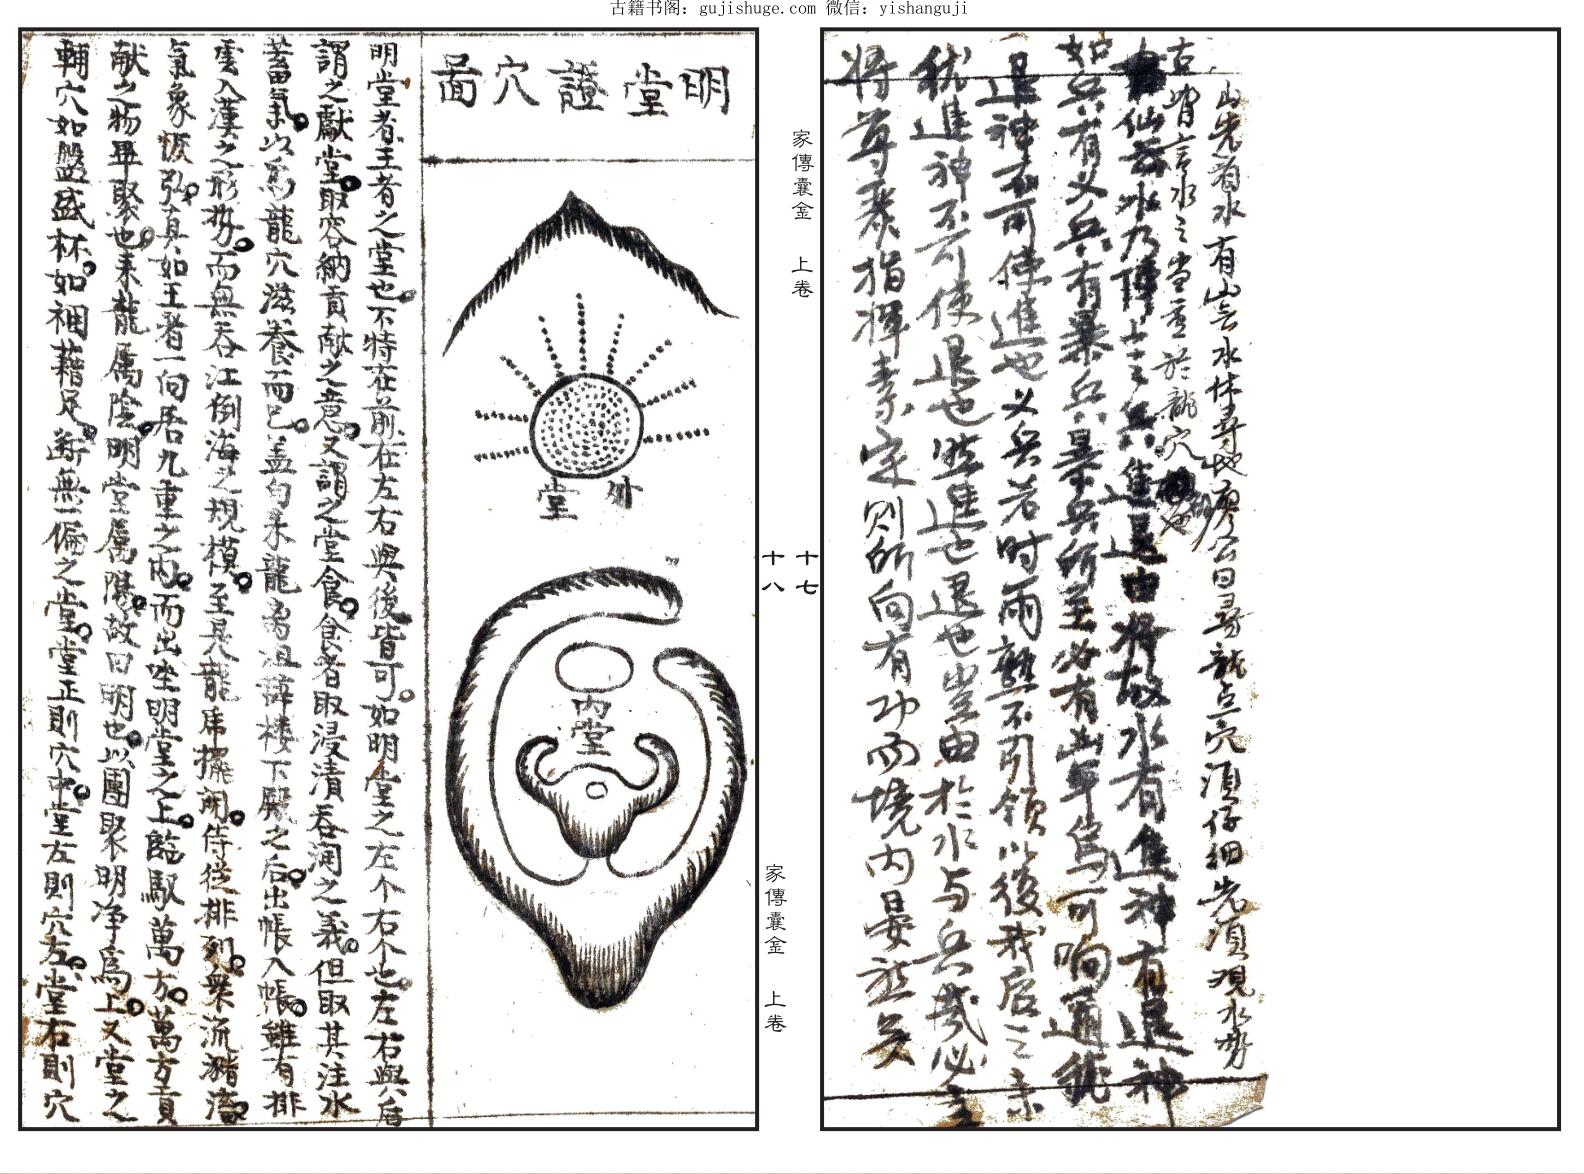 古籍书阁：gujishuge.com 微信：yishanguji
山先看水有山無水休尋地廖公曰尋龍点穴須仔細先須观水势
古皆言水之當重於龍穴
仙云水乃陣上之兵進退由將故水有進神有退神
如兵有义兵有暴兵暴兵所至必有凶年焉可响通犹
退神不可使進也义兵若时雨熟不引领以後我后之来
犹進神不可使退也然進也退也豈由於水与兵哉必主
将尊嚴指揮素定则所向有功而境内晏然矣
家傳囊金 上卷
十七
十八
家傳囊金 上卷
明堂證穴圖
外堂
内堂
明堂者王者之堂也不特在前在左右與後皆可如明堂之左个右个也左右與后
謂之獻堂取容納貢献之意又謂之堂食食者取浸漬吞润之義但取其注水
蓄氣以为龍穴滋養而已盖自来龍為祖降楼下殿之后出帳入帳雖有排
雲入漢之形势而無吞江倒海之規模至是龍虎擺闹侍從排列衆流瀦滀
氣象恢弘真如王者一向居九重之内而出坐明堂之上臨馭萬方萬方貢
献之物畢聚也来龍属陰明堂属陽故曰明也以團聚明净為上又堂之
輔穴如盤盛杯如裀藉足断無一偏之堂堂正則穴中堂左則穴左堂右則穴